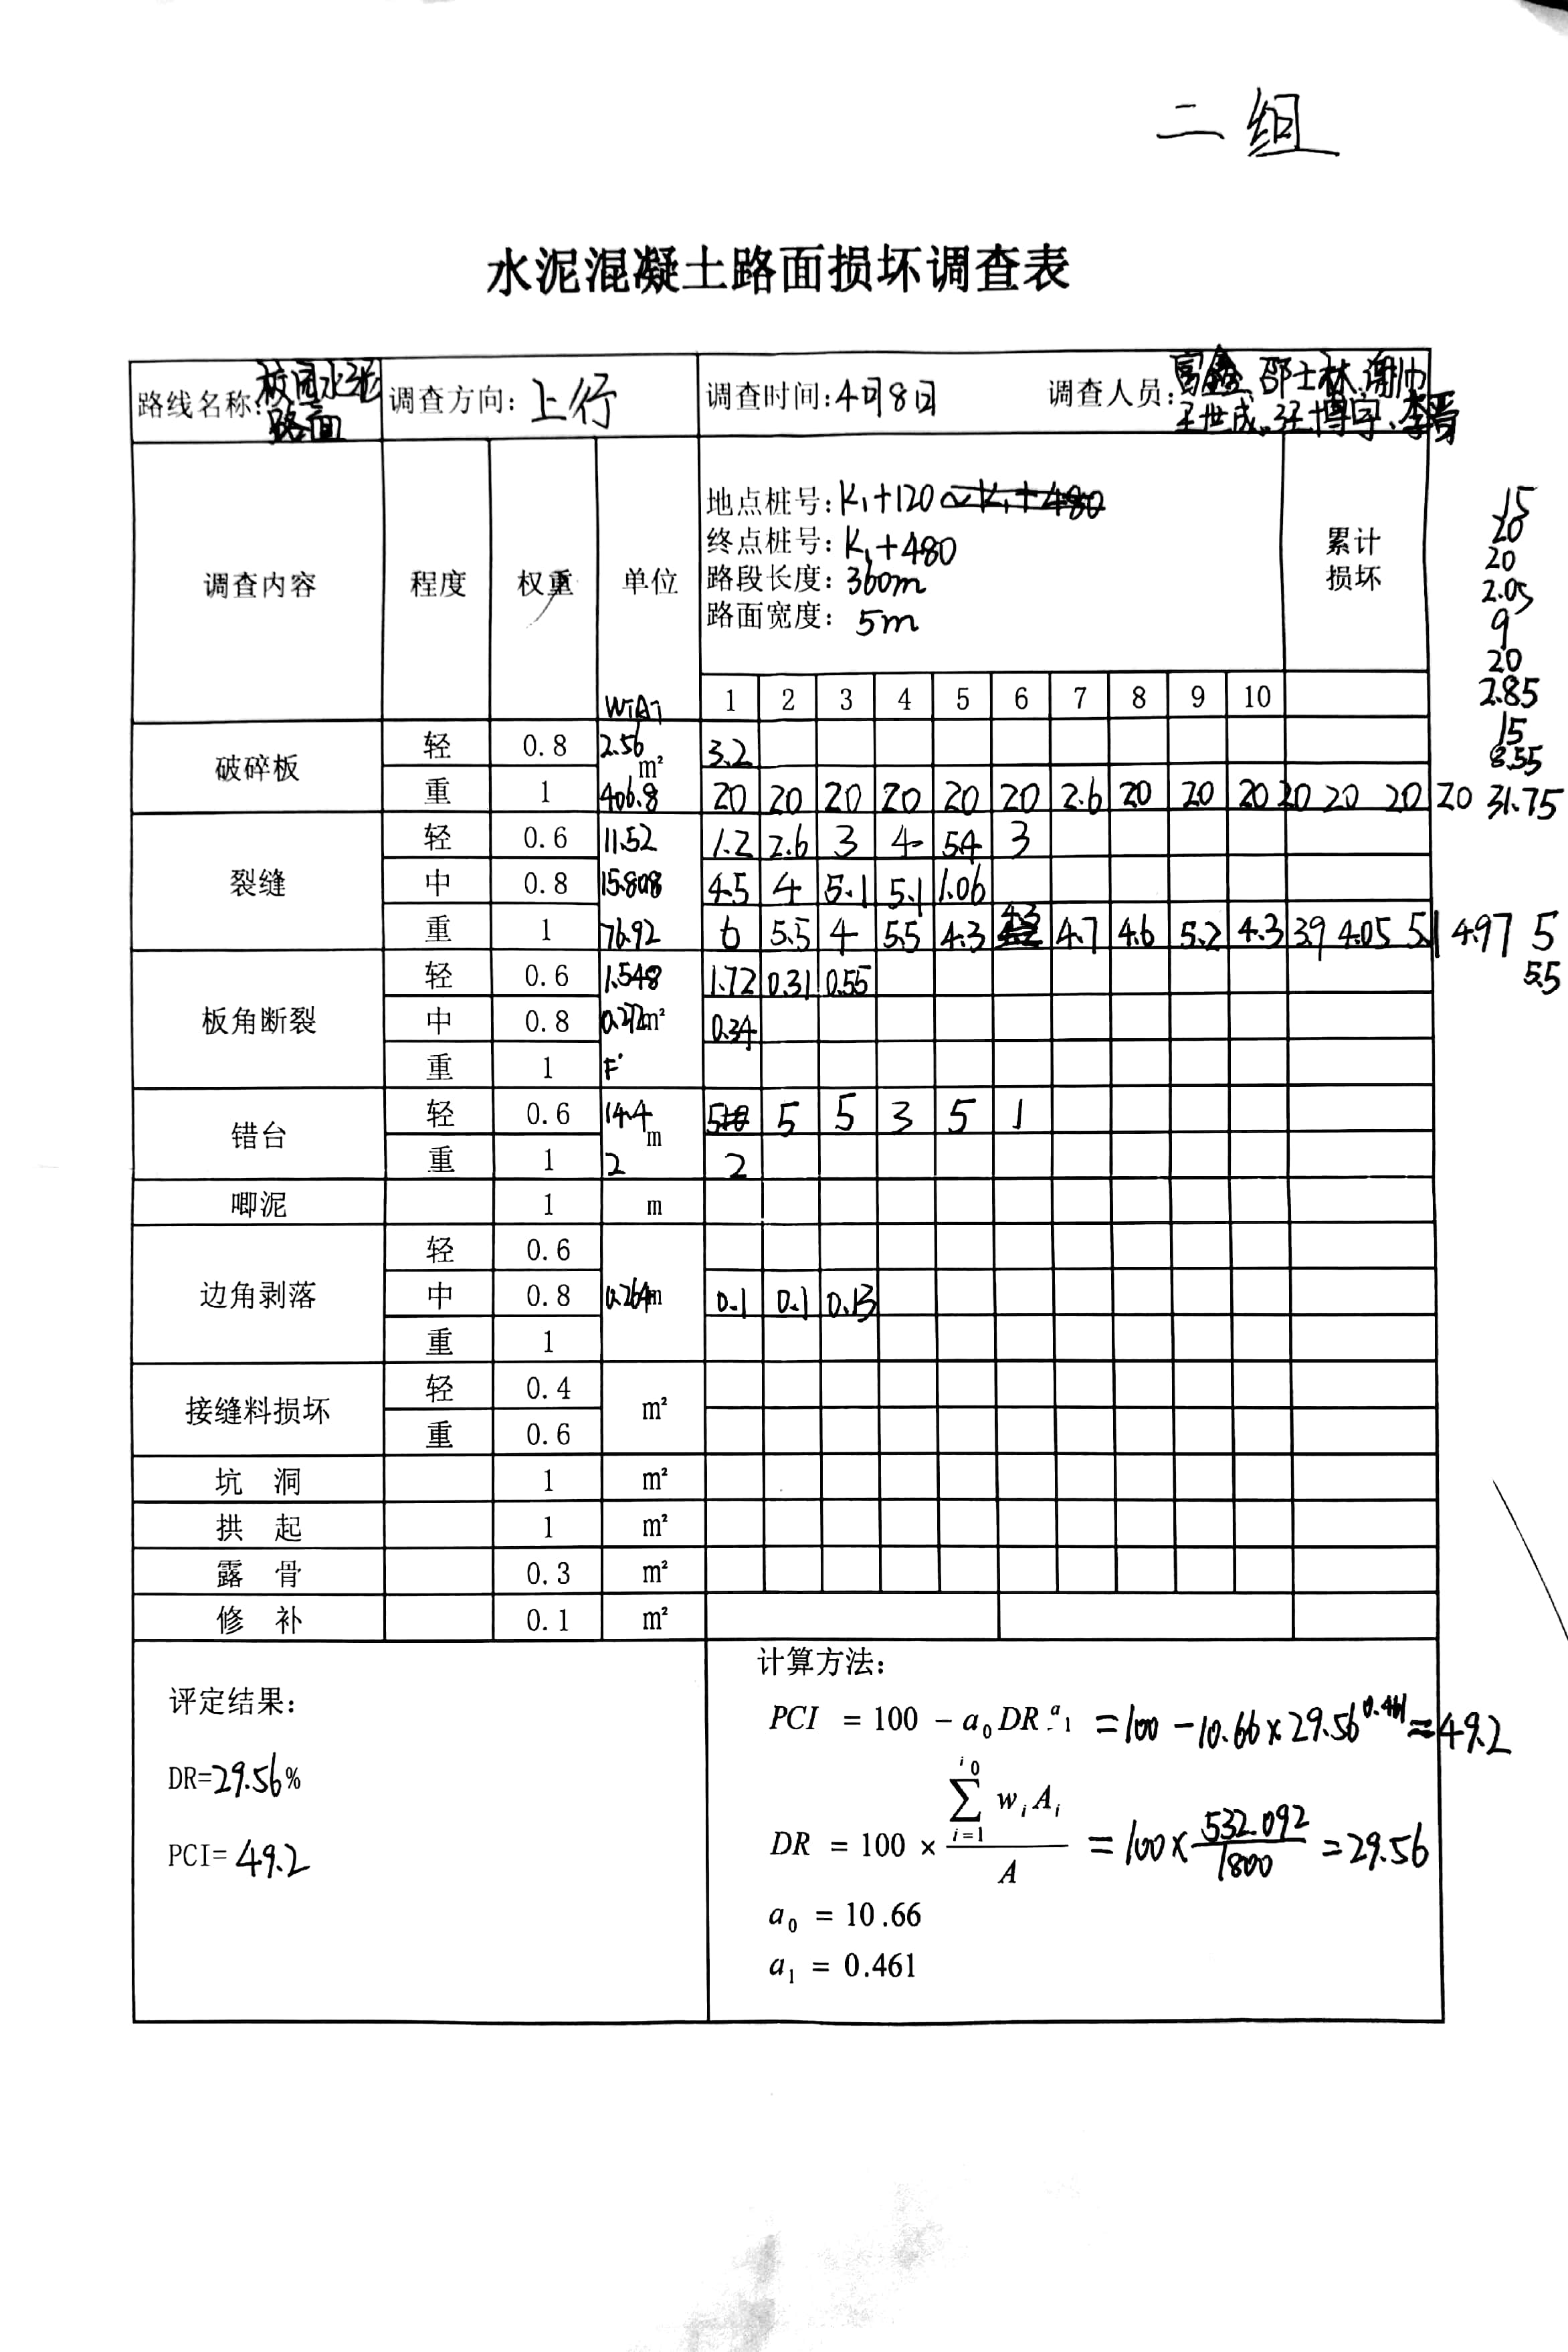 二组
水泥混凝土路面损坏调查表
路线名称: 校园水泥路面 调查方向: 上行 调查时间: 4月8日 调查人员: 邵士林、谢帅
王世成、汪博宇、李晋
地点桩号: K1+120
终点桩号: K1+480
路段长度: 360m
路面宽度: 5m
调查内容 程度 权重 单位 累计损坏
WiAi 1 2 3 4 5 6 7 8 9 10
15
20
20
2.05
9
20
2.85
15
8.55
破碎板 轻 0.8 2.56 m² 3.2
重 1 406.8 20 20 20 20 20 20 2.6 20 20 20 20 20 20 20 31.75
裂缝 轻 0.6 11.52 1.2 2.6 3 4 5.4 3
中 0.8 15.808 4.5 4 5.1 5.1 1.06
重 1 76.92 6 5.5 4 5.5 4.3 4.3 4.7 4.6 5.2 4.3 3.9 4.05 5.1 4.97 5
5.5
板角断裂 轻 0.6 1.548 1.72 0.31 0.55
中 0.8 0.272 m² 0.34
重 1
错台 轻 0.6 14.4 m 5 5 5 3 5 1
重 1 2 2
唧泥 1 m
边角剥落 轻 0.6
中 0.8 0.264 m 0.1 0.1 0.13
重 1
接缝料损坏 轻 0.4 m²
重 0.6
坑 洞 1 m²
拱 起 1 m²
露 骨 0.3 m²
修 补 0.1 m²
评定结果:
DR=29.56%
PCI=49.2
计算方法:
PCI = 100 - a₀DR^a₁ = 100 - 10.66×29.56^0.461 ≈ 49.2
DR = 100 × ∑(i=1, i₀) wᵢAᵢ / A = 100× 532.092/1800 = 29.56
a₀ = 10.66
a₁ = 0.461